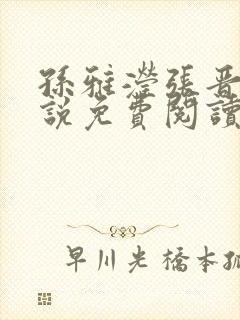 孫雅瀅張晉
說免費閱讀
早川光橋本孤